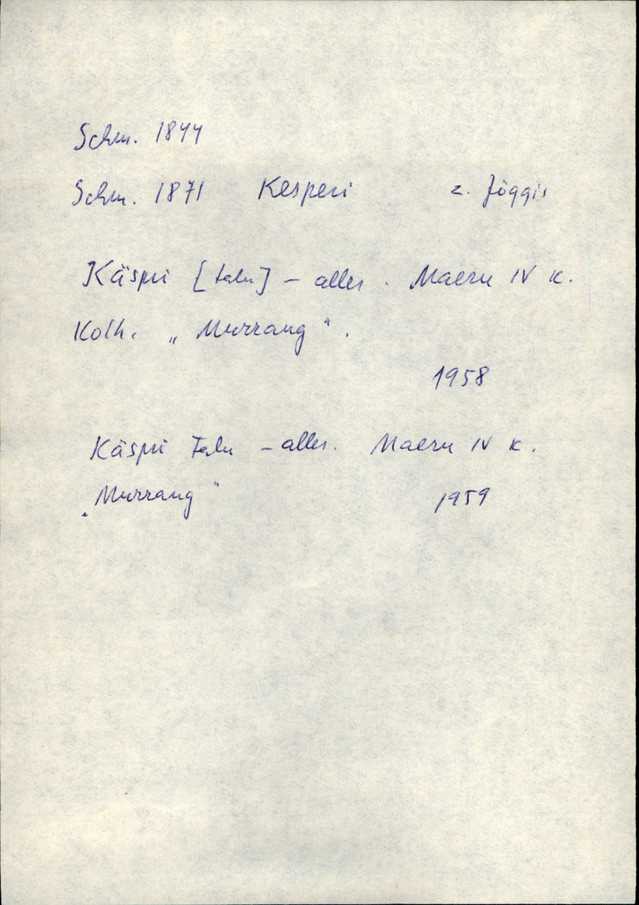 Schm. 1844
Schm. 1871 Kesperi z. Jöggis
Käspri [talu] – alles. Maeru IV k.
Kolh. „Murrang“.
1958
Käspri Talu – alles. Maeru IV k.
„Murrang“ 1959